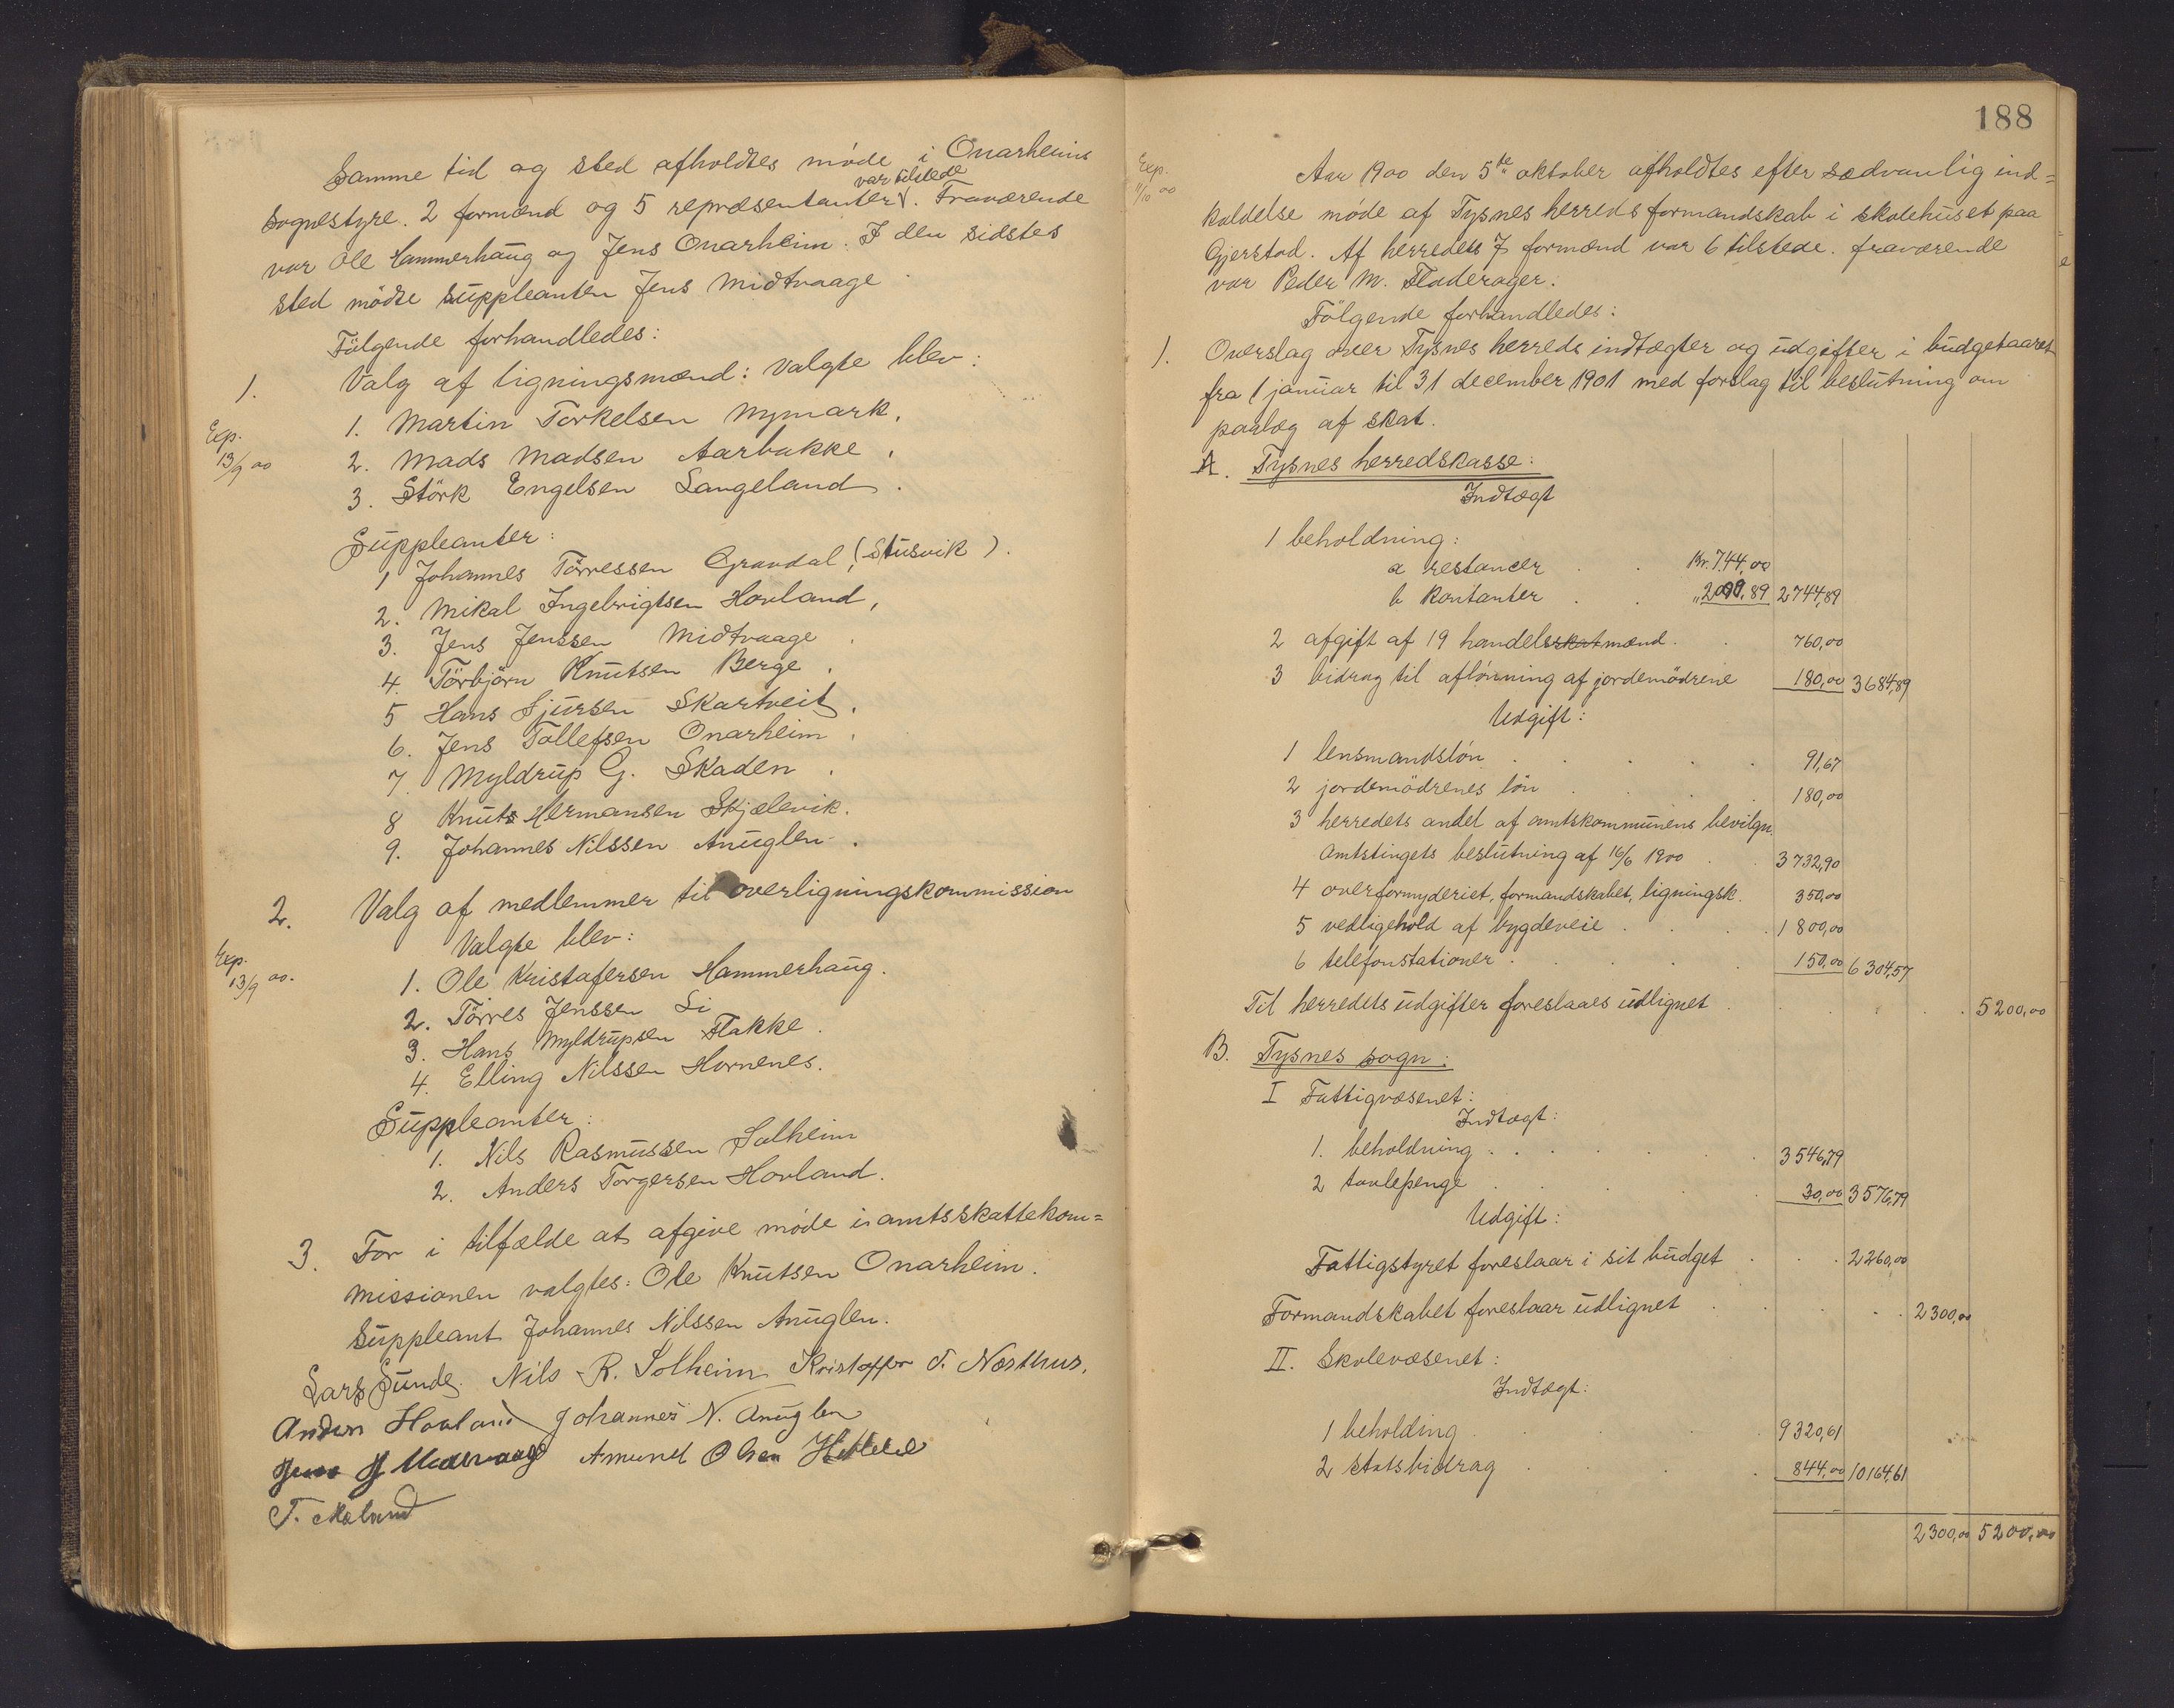 Samme tid og sted afholdtes møde i Onarheims
sognestyre. 2 formænd og 5 repræsentanter var tilstede. Fraværende
var Ole Hammerhaug og Jens Onarheim. I den sidstes
sted mødte suppleanten Jens Midtvaage
Følgende forhandledes:
1. Valg af ligningsmænd: Valgte blev:
1. Martin Torkelsen Nymark.
Exp. 13/9 00
2. Mads Madsen Aarbakke.
3. Störk Engelsen Langeland.
Suppleanter:
1 Johannes Tørressen Gravdal, (Stusvik).
2. Mikal Ingebrigtsen Hovland,
3. Jens Jenssen Midtvaage.
4. Törbjørn Knutsen Berge.
5 Hans Sjursen Skartveit.
6. Jens Tollefsen Onarheim.
7. Myldrup G. Skaden.
8 Knut Hermansen Skjælevik.
9. Johannes Nilssen Anuglen.
2. Valg af medlemmer til overligningskommission
Valgte blev:
Exp. 13/9 00.
1. Ole Kristofersen Hammerhaug.
2. Tørres Jenssen Li
3. Hans Myldrupsen Flakke.
4. Elling Nilssen Hornenes.
Suppleanter:
1. Nils Rasmussen Solheim
2. Anders Torgersen Hovland.
3. For i tilfælde at afgive møde i amtsskattekom=
missionen valgtes: Ole Knutsen Onarheim.
Suppleant Johannes Nilssen Anuglen.
Lars Sunde. Nils R. Solheim Kristoffer T. Næsthus.
Anders Hovland Johannes N. Anuglen
Jens J Midtvaage Amund Olsen
T. Mæland
188
Exp. 11/10 00
Aar 1900 den 5te oktober afholdtes efter sædvanlig ind=
kaldelse møde af Tysnes herreds formandskab i skolehuset paa
Gjerstad. Af herredets 7 formænd var 6 tilstede. fraværende
var Peder M. Fladerager.
Følgende forhandledes:
1. Overslag over Tysnes herreds indtægter og udgifter i budgetaaret
fra 1 januar til 31 december 1901 med forslag til beslutning om
paalæg af skat.
A. Tysnes herredskasse:
Indtægt
1 beholdning:
a restancer . . Kr. 744,00
b kontanter . . " 2000,89 2744,89
2 afgift af 19 handelsskatmænd . . 760,00
3 bidrag til aflønning af jordemødrene 180,00 3684,89
Udgift:
1 lensmandsløn . . . . . 91,67
2 jordemødrenes løn . . . . 180,00
3 herredets andel af amtskommunens bevilgn.
Amtstingets beslutning af 16/6 1900 . . 3732,90
4 overformyderiet, formandskabet, ligningsk. 350,00
5 vedligehold af bygdeveie . . . . 1800,00
6 telefonstationer . . . . 150,00 6304,57
Til herredets udgifter foreslaaes udlignet . . . . . 5200,00
B. Tysnes sogn:
I Fattigvæsenet:
Indtægt:
1. beholdning . . . . . . 3546,79
2 tavlepenge . . . . . 30,00 3576,79
Udgift:
Fattigstyret foreslaar i sit budget . . . 2260,00
Formandskabet foreslaar udlignet . . . . 2300,00
II. Skolevæsenet:
Indtægt:
1 beholding . . . . . 9320,61
2 statsbidrag . . . . 844,00 10164,61
2300,00 5200,00